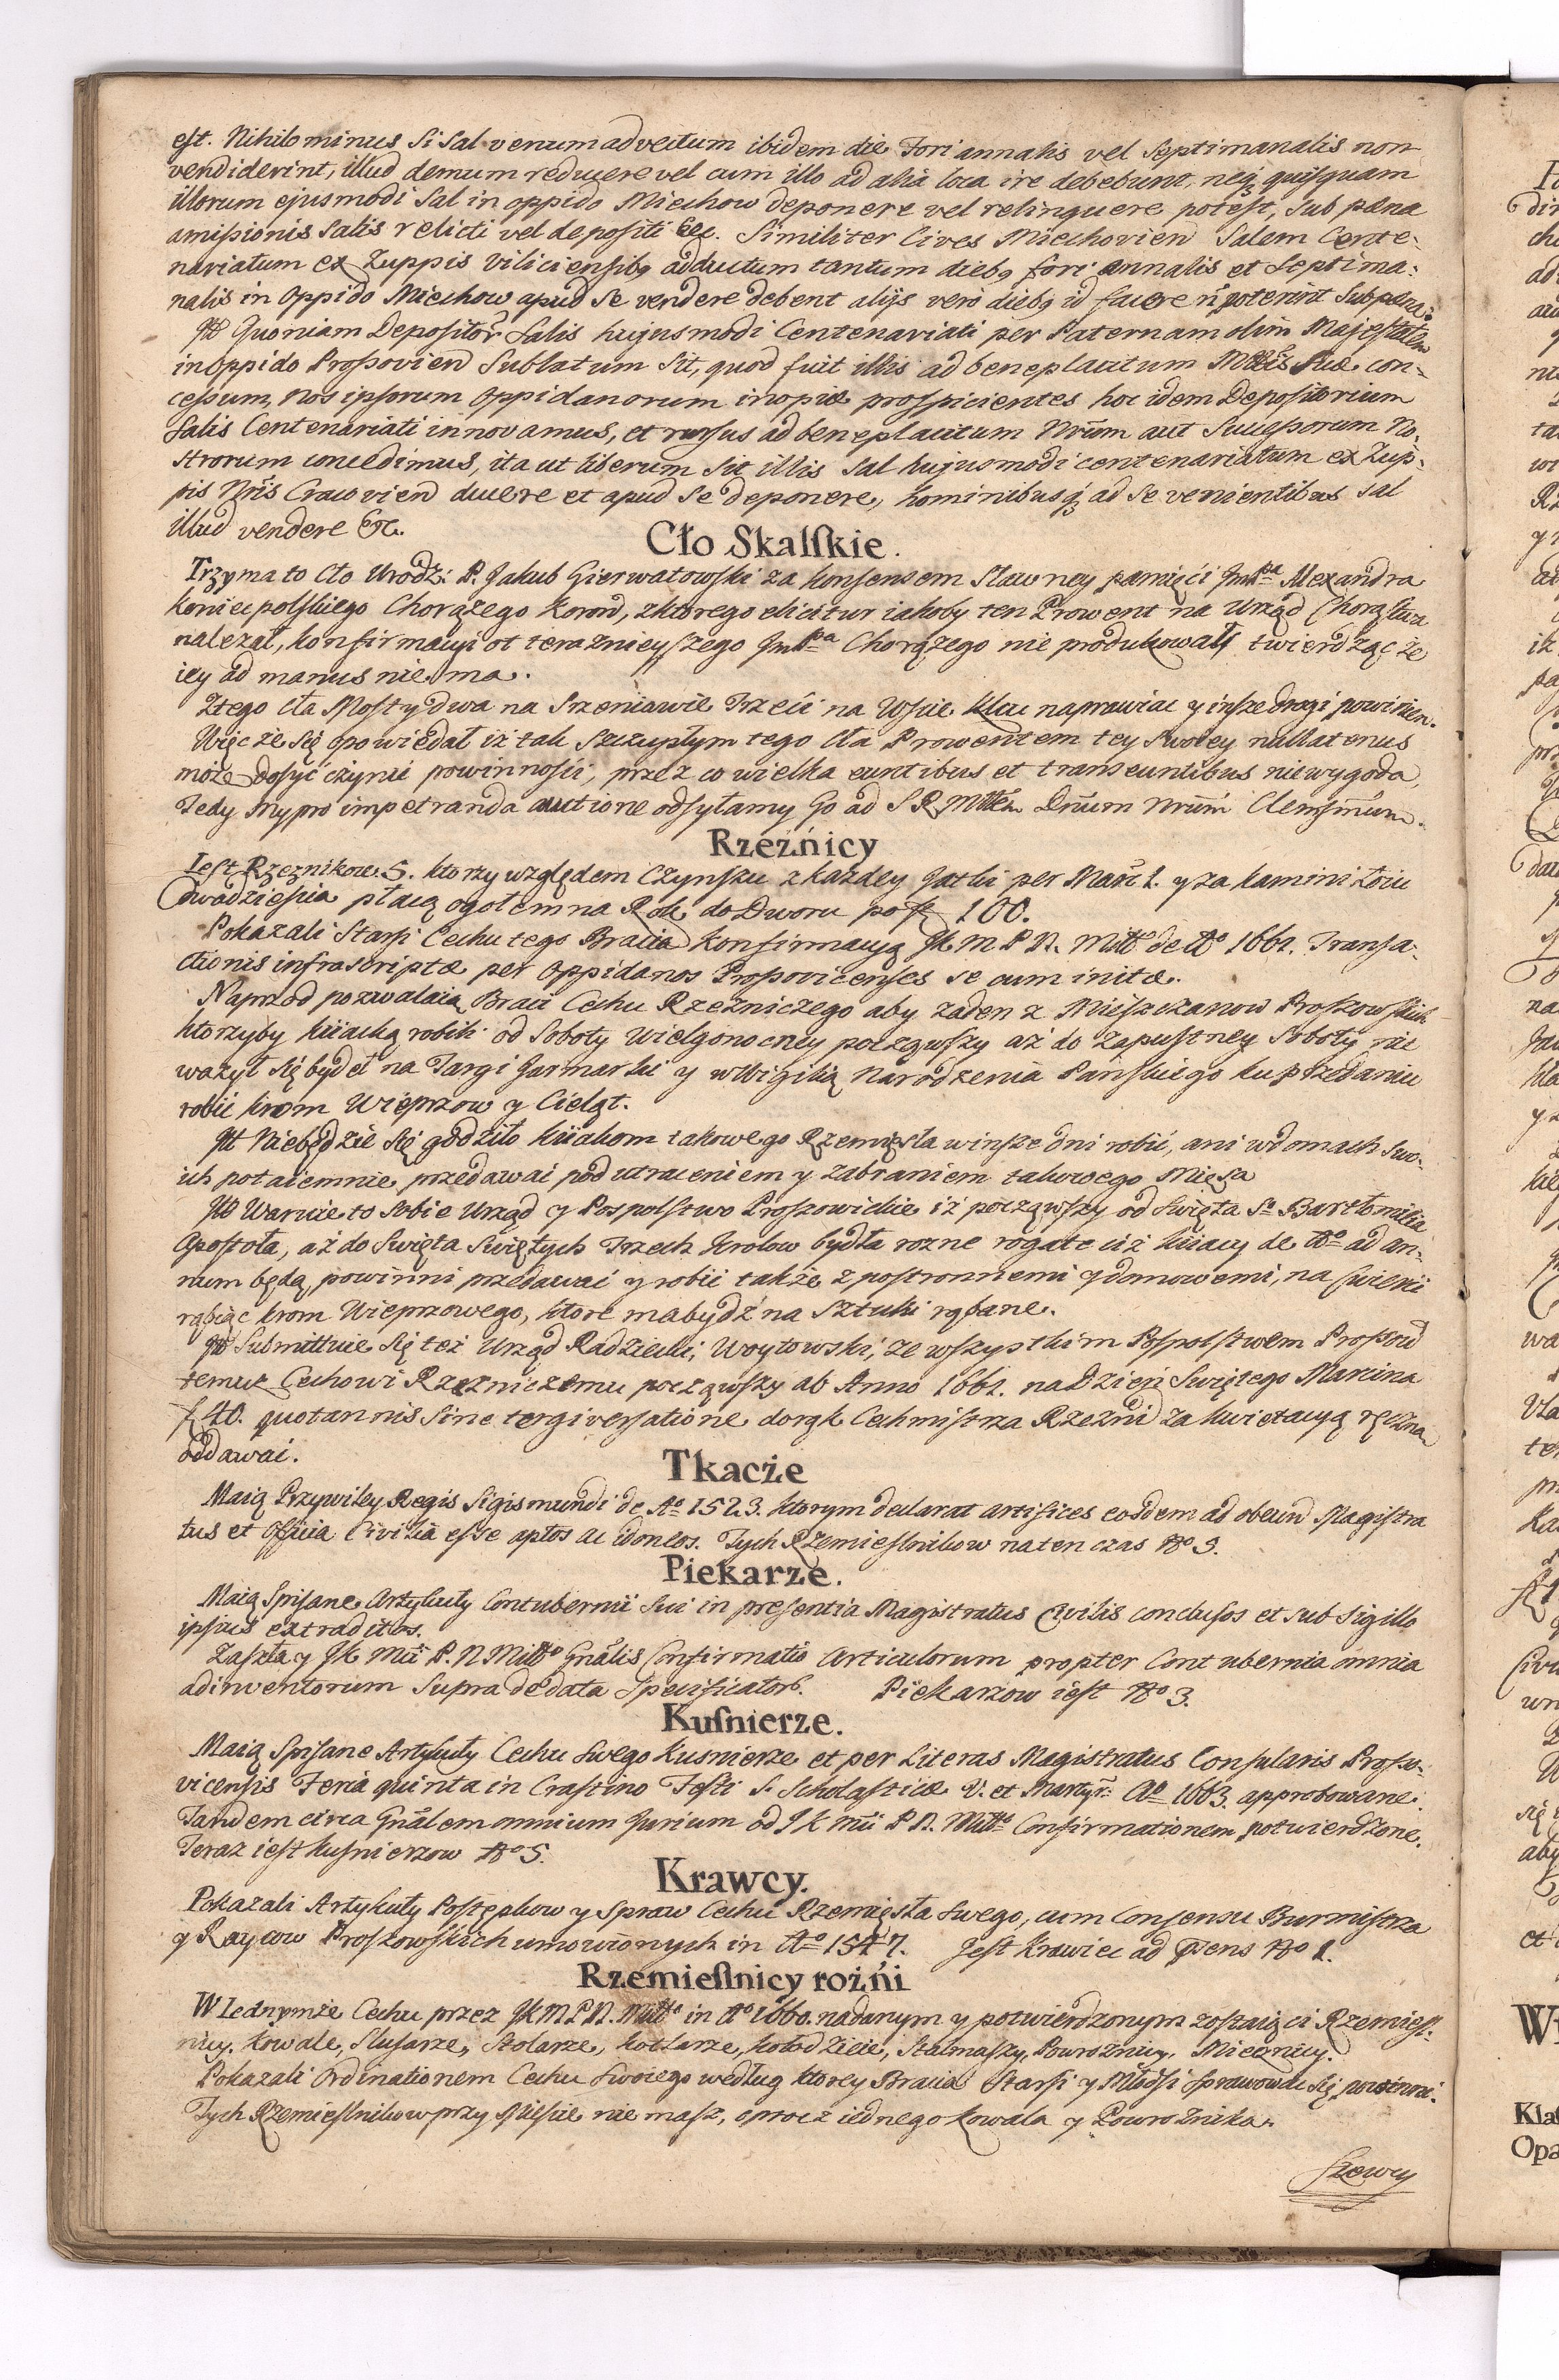 est. Nihilominus si Sal venum advectum ibidem die Fori annalis vel Septimanalis non
vendiderint, illud demum reducere vel cum illo ad alia loca ire debebunt, neq; quisquam
illorum ejusmodi Sal in oppido Miechow deponere vel relinquere potest, sub pæna
amissionis Salis relicti vel depositi &c. Similiter Cives Miechovien Salem Cente-
nariatum ex Zuppis Viliciensibq adductum tantum diebq fori annalis et Septima:
nalis in Oppido Miechow apud se vendere debent alijs vero diebq id facere ñ poterint Sub pæna:
Itt Quoniam Depositor Salis hujusmodi Centenariati per Paternam olim Majestatem
in Oppido Prossovien Sublatum Sit, quod fuit illis ad beneplacitum Mttis Suæ con-
cessum, Nos ipsorum Oppidanorum inopiæ prospicientes hoc idem Depositorium
Salis Centenariati innovamus, et rursus ad beneplacitum Nrum aut Successorum No-
strorum concedimus, ita ut liberum sit illis Sal hujusmodi centenariatum ex Zup-
pis Nris Cracovien ducere et apud Se deponere, hominibusq; ad se venientibus Sal
illud vendere &c.
Cło Skalskie.
Trzyma to Cło Urodz: P. Jakub Gierwatowski za konsensem Sławney pamięći ImPa Alexandra
Koniecpolskiego Chorążego Koron, z ktorego elicitur iakoby ten Prowent na Urząd Chorąstwa
nalezał, konfirmacyi ot teraznieyszego ImPa Chorążego nie produkował twierdząc że
iey ad manus nie ma.
Z tego Cła Mosty dwa na Szreniawie Trzeći na Wsie naprawiac y insze drogi powinien.
Więc że się opowiedał iż tak szczupłym tego Cła Prowentem tey Swoiey nullatenus
może dosyć czynić powinności, przez co wielka euntibus et transeuntibus niewygoda,
Tedy My pro impetranda auctione odsyłamy Go ad S R Mttem Dnum Nrum Clemsmum.
Rzeźnicy
Iest Rzeznikow 5. ktorzy względem Czynszu z każdey Jatki per Marc 1. y za kamieni Łoiu
Dwadziescia płacą ogołem na Rok do Dworu po f 100.
Pokazali Starsi Cechu tego Bracia Konfirmacyą Jk M. P. N. Mttsci de Ao 1661. Transa-
ctionis infrascriptæ per Oppidanos Prossovicenses se cum initæ.
Naprzod pozwalaią Braci Cechu Rzezniczego aby zaden z Mieszczanow Proszowskich
ktorzyby kiiacką robili od Soboty Wielgonocney począwszy aż do Zapustney Soboty nie
ważył się bydeł na Targi Jarmarki y w Wigilią Narodzenia Pańskiego ku przedaniu
robić krom Wieprzow y Cieląt.
Itt Niebędzie się godziło kiiakom takowego Rzemięsła w insze dni robić, ani w domach swo-
ich potaiemnie przedawać pod utraceniem y zabraniem takowego Mięsa
Itt Waruie to sobie Urząd y Pospolstwo Proszowickie iż począwszy od Swięta So Bartłomieia
Apostoła, aż do Swięta Swiętych Trzech Krolow bydła rozne rogate ciż kiiacy de Ao ad an-
num będą, powinni przedawać y robić także z postronnemi y domowemi, na Cwierci
rąbiąc krom Wieprzowego, ktore ma bydź na Sztuki rąbane.
Itt Submittuie się też Urząd Radziecki, Woytowski, ze wszystkim Pospolstwem Proszow
temuz Cechowi Rzezniczemu począwszy ab Anno 1661. na Dzień Swiętego Marcina
f 40. quotannis sine tergiversatione do rąk Cechmistrza Rzezni za kwietacyą ręczną
oddawai.
Tkacże
Maią Przywiley Regis Sigismundi de Ao 1523. ktorym declarat artifices eosdem ad obeund Magistra
tus et Officia Civilia esse aptos ac idoneos. Tych Rzemieslnikow na ten czas No 3.
Piekarze.
Maią Spisane Artykuły Contubernii Sui in presentia Magistratus Civilis conclusos et sub Sigillo
ipsius extraditos.
Zaszła y Jk Mci P. N Mttso Gnalis Confirmatio Articulorum propter Contubernia omnia
adinventorum Supra de data Specificator. Piekarzow iest No 3.
Kusnierze.
Maią Spisane Artykuły Cechu Swego Kusnierze et per Literas Magistratus Consularis Prosso-
vicensis Feria quinta in Crastino Festi S. Scholasticæ V. et Martyr. Ao 1663. approbowane.
Tandem circa Gnalem omnium Jurium od Jk Mci P N. Mtto Confirmationem potwierdzone.
Teraz iest Kusnierzow No 5.
Krawcy.
Pokazali Artykuły Postępkow y Spraw Cechu Rzemięsła Swego, cum Consensu Burmistrza
y Raycow Proszowskich umowionych in Ao 1547. Jest Krawiec ad Prens No 1.
Rzemieslnicy rożńi
W Iednymże Cechu przez Jk M P N. Mtto in Ao 1660. nadanym y potwierdzonym zostaią ci Rzemiesl-
nicy. Kowale, Slusarze, Stolarze, Kotlarze, Kołodzieie, Stalmaszy, Powroznicy, Miecznicy.
Pokazali Ordinationem Cechu Swoiego według ktorey Bracia Starsi y Młodsi sprawowac się powinni.
Tych Rzemieslnikow przy Miescie nie masz, oprocz iednego Kowala y Powroznika.
Szewcy